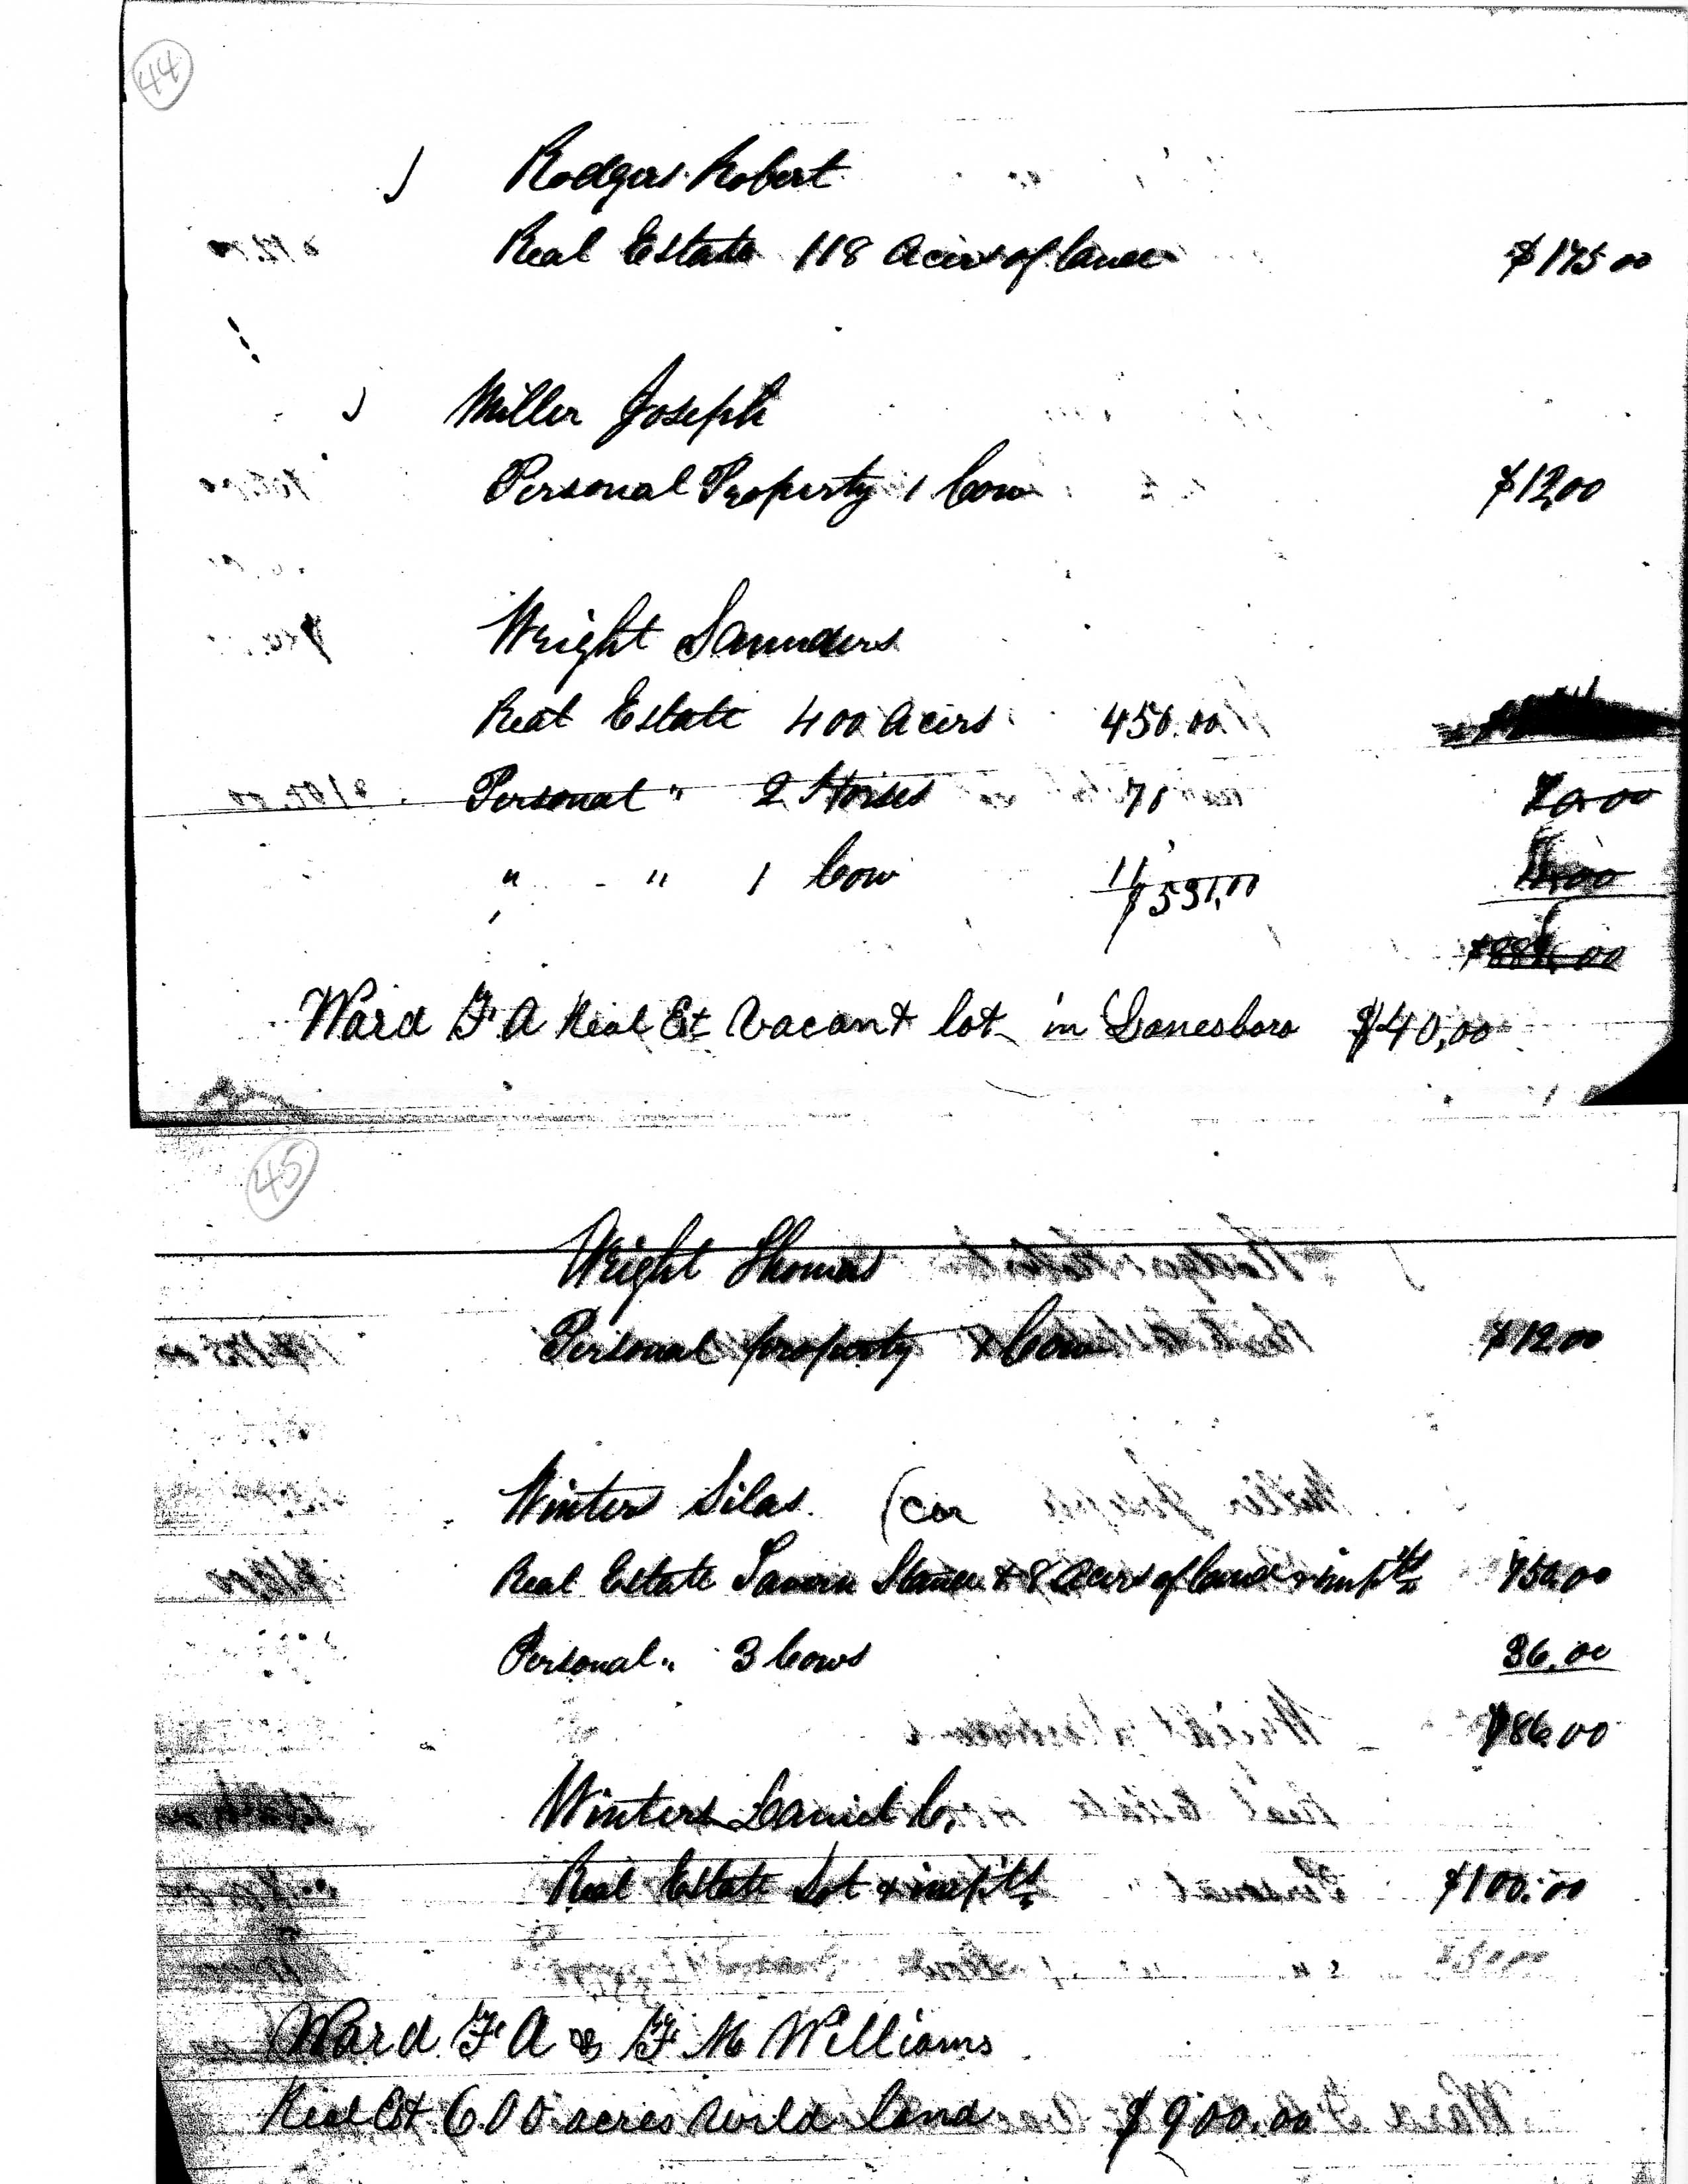 44
Rodgers Robert
Real Estate 118 Acers of land $175 00
Miller Joseph
Personal Property 1 Cow $12,00
Wright Saunders
Real Estate 400 Acers 450.00
Personal " 2 Horses 70 70.00
" " 1 Cow 11
$531,00
Ward F A Real Est Vacant lot in Lanesboro $40,00
45
Wright Thomas
Personal property 1 Cow $12 00
Winters Silas. (cor
Real Estate Tavern Stand & 8 Acers of land & impts 750,00
Personal " 3 Cows 36.00
786,00
Winters Daniel C.
Real Estate Lot & impts $100.00
Ward F A & F M Williams
Real Est 600 acres wild land $900.00